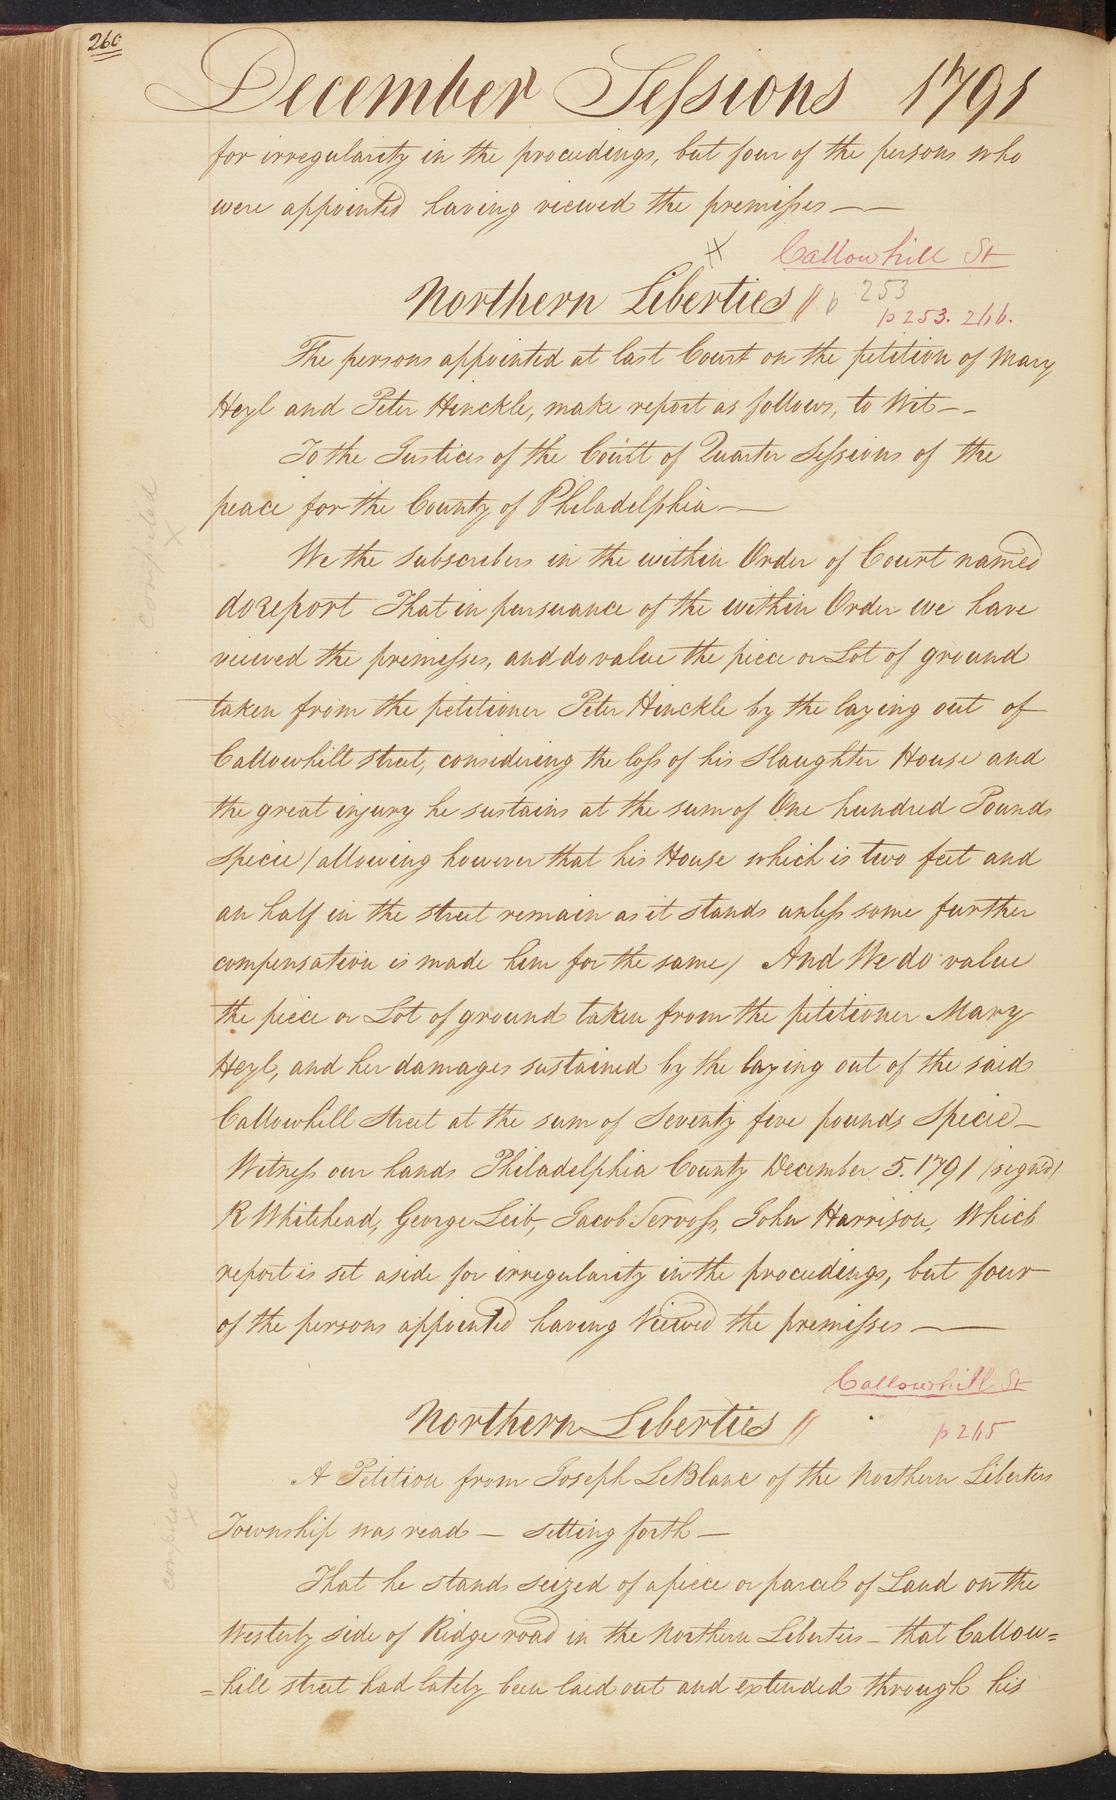 260
December Sessions 1791
for irregularity in the proceedings, but four of the persons who
were appointed having viewed the premisses ——
Callowhill St
Northern Liberties // p 253
p 253. 266.
The persons appointed at last Court on the petition of Mary
Heyl and Peter Hinckle, make report as follows, to Wit--
To the Justices of the Court of Quarter Sessions of the
peace for the County of Philadelphia —
We the subscribers in the within Order of Court named
do report That in pursuance of the within Order we have
viewed the premisses, and do value the piece or Lot of ground
taken from the petitioner Peter Hinckle by the laying out of
Callowhill street, considering the loss of his Slaughter House and
the great injury he sustains at the sum of One hundred Pounds
Specie (allowing however that his House which is two feet and
an half in the street remain as it stands unless some further
compensation is made him for the same) And We do value
the piece or Lot of ground taken from the petitioner Mary
Heyl, and her damages sustained by the laying out of the said
Callowhill Street at the sum of Seventy five pounds Specie —
Witness our hands Philadelphia County December 5. 1791 (signed)
R Whitehead, George Leib, Jacob Servoss, John Harrison, Which
report is set aside for irregularity in the proceedings, but four
of the persons appointed having Viewed the premisses ——
Callowhill St
Northern Liberties //
p 265
A Petition from Joseph LeBlanc of the Northern Liberties
Township was read — setting forth —
That he stands seized of a piece or parcel of Land on the
Westerly side of Ridge road in the Northern Liberties — that Callow=
=hill street had lately been laid out and extended through his
compiled
X
compiled
X